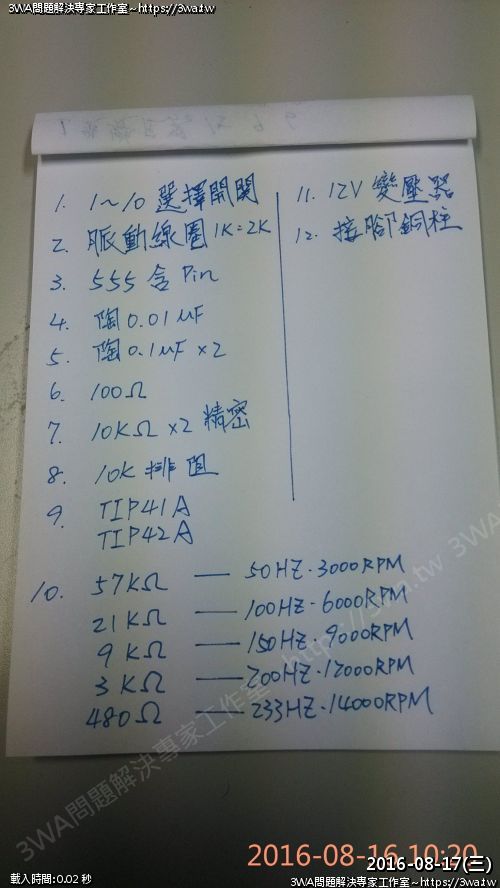 3WA問題解決專家工作室~https://3wa.tw
2016/08/17(三)
1. 1~10 選擇開關
2. 脈動線圈 1K=2K
3. 555 含 Pin
4. 陶 0.01 μF
5. 陶 0.1 μF ×2
6. 100Ω
7. 10KΩ ×2 精密
8. 10K 排阻
9. TIP41A
TIP42A
10. 57KΩ — 50HZ·3000RPM
21KΩ — 100HZ·6000RPM
9KΩ — 150HZ·9000RPM
3KΩ — 200HZ·12000RPM
480Ω — 233HZ·14000RPM
11. 12V 變壓器
12. 接腳銅柱
3WA問題解決專家工作室~https://3wa.tw 3WA
2016-08-16 10:20
2016-08-17(三)
載入時間:0.02 秒
3WA問題解決專家工作室~https://3wa.tw